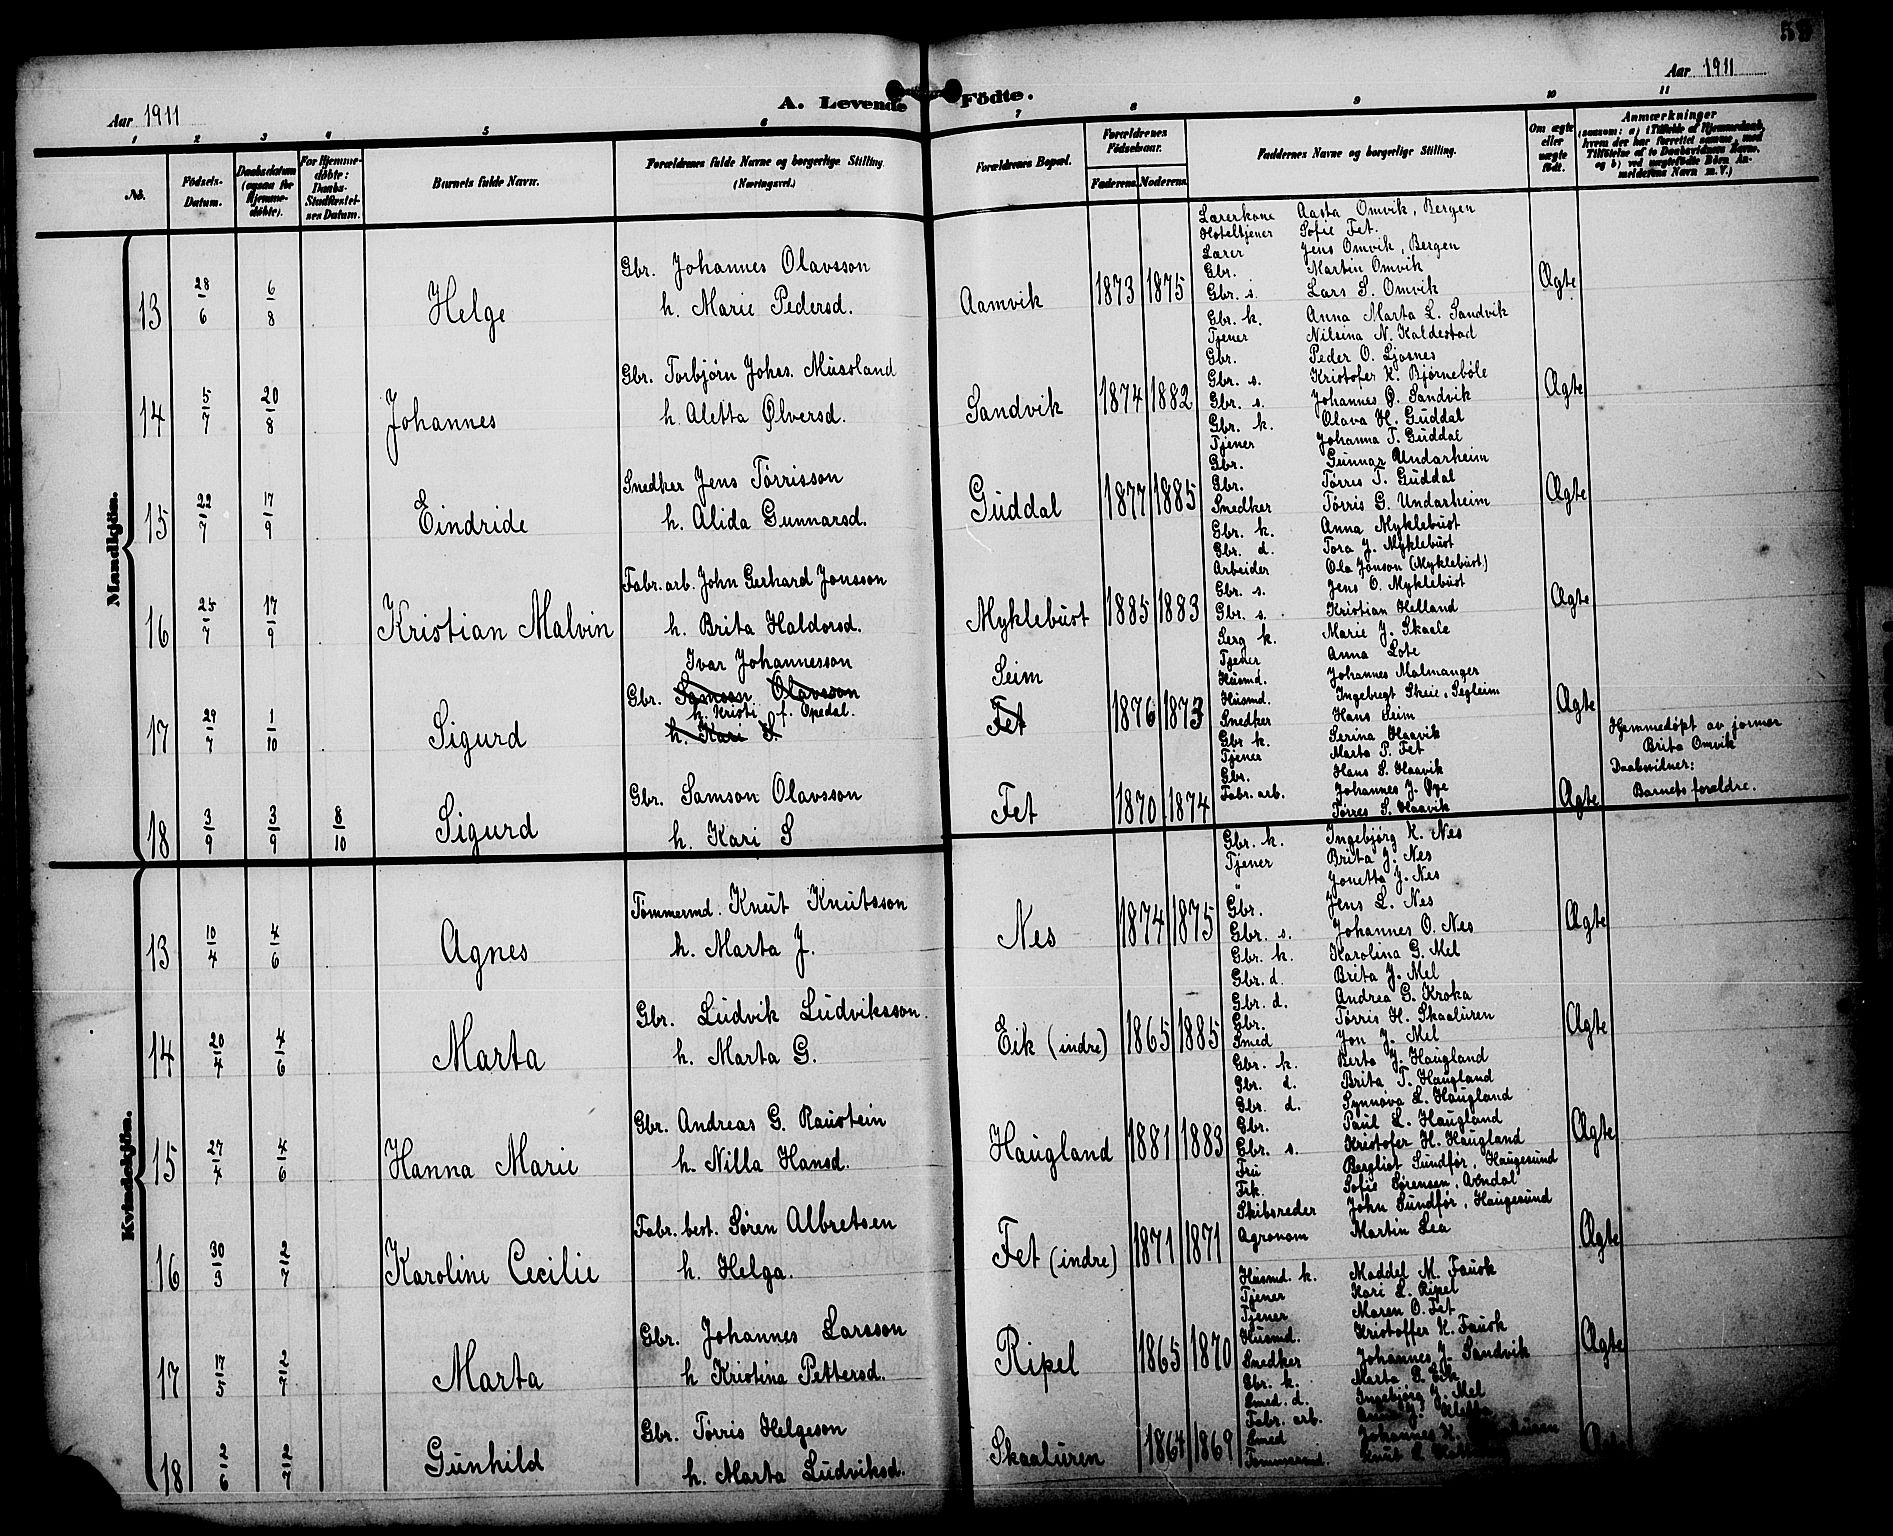 Aar 1911
A. Levende Fødte.
Aar 1911
1 2 3 4 5 6 7 8 9 10 11
No.
Fødsels-Datum.
Daabsdatum (ogsaa for Hjemmedøbte).
For Hjemmedøbte: Daabs-Stadfæstelses Datum.
Barnets fulde Navn.
Forældrenes fulde Navne og borgerlige Stilling. (Næringsvei.)
Forældrenes Bopæl.
Forældrenes Fødselsaar.
Faderens. Moderens.
Faddernes Navne og borgerlige Stilling.
Om ægte eller uægte født.
Anmærkninger
Mandkjøn.
13 28/6 6/8 Helge
Gbr. Johannes Olavsson
h. Marie Pedersd.
Aamvik 1873 1875 Ægte
Lærerkone Aasta Omvik, Bergen
Hoteltjener Sofie Fet.
Lærer Jens Omvik, Bergen
Gbr. Martin Omvik
Gbr. s. Lars S. Omvik
14 5/7 20/8 Johannes
Gbr. Torbjørn Johs. Musland
h. Aletta Ølversd.
Sandvik 1874 1882 Ægte
Gbr. k. Anna Marta L. Sandvik
Tjener Nilsina N. Kaldestad
Gbr. Peder O. Ljosnes
Gbr. s. Kristofer K. Bjørnebøle
Gbr. s. Johannes Ø. Sandvik
15 22/7 17/9 Eindride
Snedker Jens Tørrisson
h. Alida Gunnarsd.
Guddal 1877 1885 Ægte
Gbr. k. Olava H. Guddal
Tjener Johanna T. Guddal
Gbr. Gunnar Undarheim
Gbr. Tørres T. Guddal
Snedker Tørris G. Undarheim
16 25/7 17/9 Kristian Malvin
Fabr. arb. John Gerhard Jonsson
h. Brita Haldorsd.
Myklebust 1885 1883 Ægte
Gbr. k. Anna Myklebust
Gbr. d. Tora J. Myklebust
Arbeider Ola Jonson (Myklebust)
Gbr. s. Jens O. Myklebust
Gbr. s. Kristian Helland
17 29/7 1/10 Sigurd
Ivar Johannesson
Gbr. Samson Olavsson
h. Kristi f. Opedal.
h. Kari S.
Seim
Fet 1876 1873 Ægte
Serg k. Marie J. Skaale
Tjener Anna Lote
Husmd. Johannes Malmanger
Husmd. Ingebregt Skeie, Segleim
Snedker Hans Seim
18 3/9 3/9 8/10 Sigurd
Gbr. Samson Olavsson
h. Kari S
Fet 1870 1874 Ægte
Gbr k. Serina Haavik
Tjener Marta P. Fet
Gbr. Hans S. Haavik
Fabr. arb. Johannes J. Øye
Tørres S. Haavik
Hjemmedøpt av jormor
Brita Omvik
Daabsvidner:
Barnets forældre.
Kvindekjøn.
13 10/4 4/6 Agnes
Tømmermd. Knut Knutsson
h. Marta J.
Nes 1874 1875 Ægte
Gbr. k. Ingebjørg K. Nes
Tjener Brita J. Nes
" Jonetta J. Nes
Gbr. Jens L. Nes
Gbr. s. Johannes O. Nes
14 20/4 4/6 Marta
Gbr. Ludvik Ludviksson.
h. Marta G.
Eik (indre) 1865 1885 Ægte
Gbr. k. Karolina G. Mel
Gbr. d. Brita J. Mel
Gbr. d. Andrea G. Kroka
Gbr. Tørris H. Skaaluren
Smed Jon J. Mel
15 27/4 4/6 Hanna Marie
Gbr. Andreas G. Raustein
h. Nilla Hansd.
Haugland 1881 1883 Ægte
Gbr. k. Berta J. Haugland
Gbr. d. Brita T. Haugland
Gbr. d. Synnøva L. Haugland
Gbr. Paul L. Haugland
Gbr. s. Kristofer H. Haugland
16 30/3 2/7 Karoline Cecilie
Fabr. best. Søren Albretsen
h. Helga.
Fet (indre) 1871 1871 Ægte
Fru Bergliot Sundfør, Haugesund
Frk. Sofie Sørensen, Arndal
Skibsreder John Sundfør, Haugesund
Agronom Martin Lea
17 17/5 2/7 Marta
Gbr. Johannes Larsson
h Kristina Pettersd.
Ripel 1865 1870 Ægte
Husmd. k. Maddel M. Fausk
Tjener Kari L. Ripel
Tjener Maren O. Fet
Husmd. Kristoffer K. Fausk
Snedker Johannes J. Sandvik
18 2/6 2/7 Gunhild
Gbr. Tørris Helgeson
h. Marta Ludviksd.
Skaaluren 1864 1869
Gbr. k. Marta P. Eik
Smed. d. Ingebjørg J. Mel
Fabr. arb.
Smed Johannes H.
Tømmermd. Knut